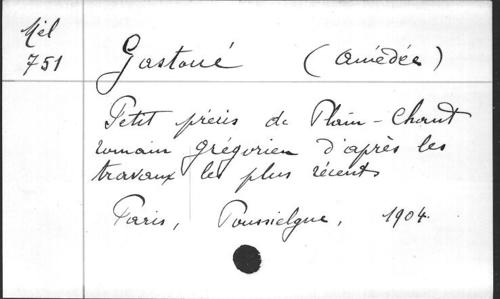 Mél
751
Gastoué (Amédée)
Petit précis de Plain-Chant
romain grégorien d'après les
travaux les plus récents
Paris, Poussielgue, 1904.